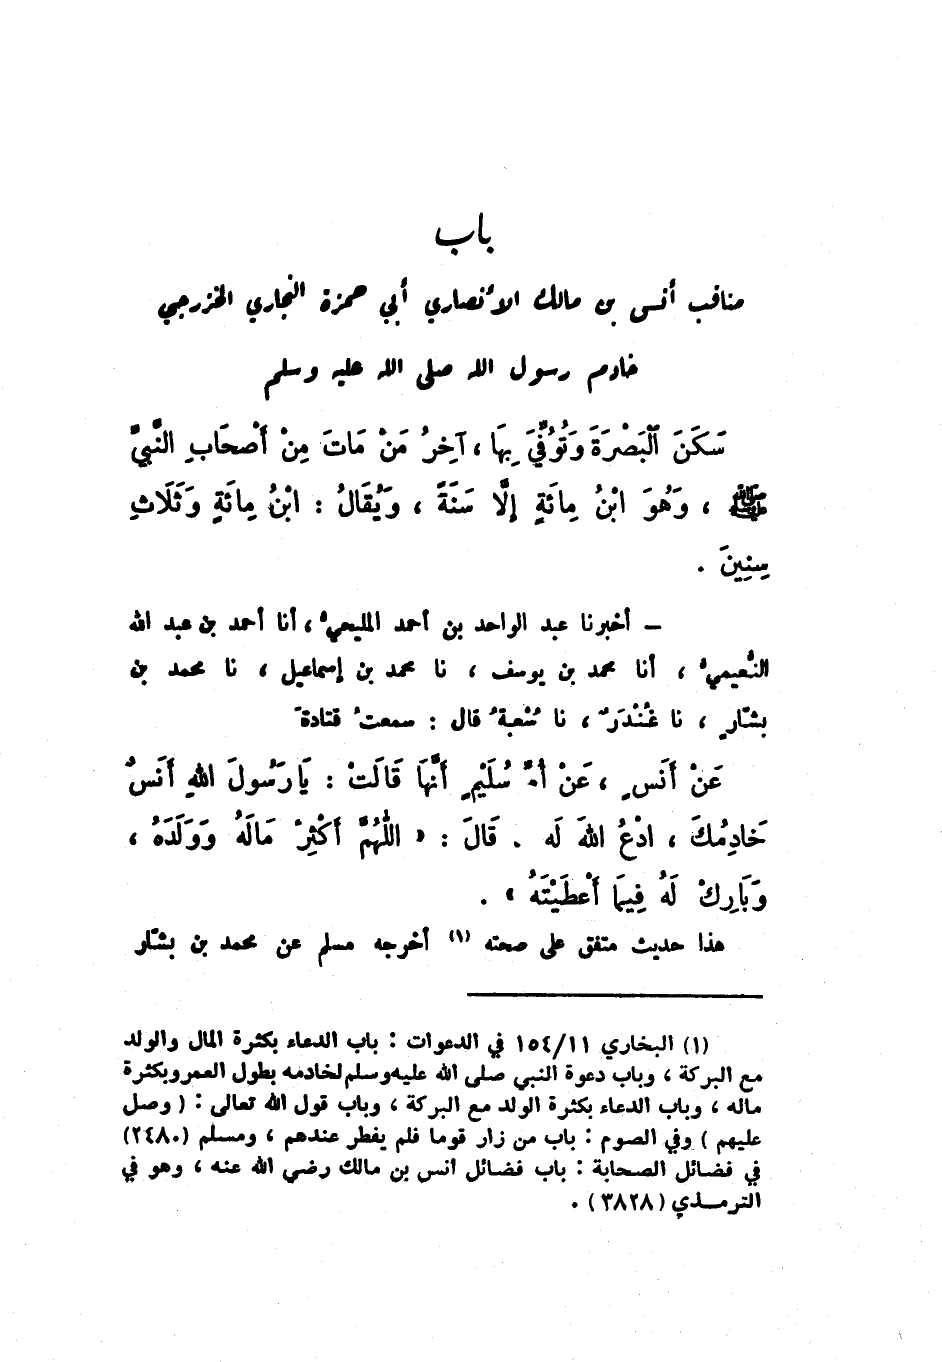 باب
مناقب أنس بن مالك الأنصاري أبي حمزة النجاري الخزرجي
خادم رسول الله صلى الله عليه وسلم
سَكَنَ ٱلْبَصْرَةَ وَتُوُفِّيَ بِهَا ، آخِرُ مَنْ مَاتَ مِنْ أَصْحَابِ النَّبِيِّ
ﷺ ، وَهُوَ ابْنُ مِائَةٍ إِلَّا سَنَةً ، وَيُقَالُ : ابْنُ مِائَةٍ وَثَلَاثِ
سِنِينَ .
– أخبرنا عبد الواحد بن أحمد المليحيُ ، أنا أحمد بن عبد الله
النُّعيميُ ، أنا محمد بن يوسف ، نا محمد بن إسماعيل ، نا محمد بن
بشّارٍ ، نا غُنْدَرٌ ، نا شُعْبةُ قال : سمعتُ قتادةَ
عَنْ أَنَسٍ ، عَنْ أُمِّ سُلَيْمٍ أَنَّهَا قَالَتْ : يَا رَسُولَ اللهِ أَنَسٌ
خَادِمُكَ ، ادْعُ اللهَ لَهُ . قَالَ : « اللَّهُمَّ أَكْثِرْ مَالَهُ وَوَلَدَهُ ،
وَبَارِكْ لَهُ فِيمَا أَعْطَيْتَهُ » .
هذا حديث متفق على صحته (١) أخرجه مسلم عن محمد بن بشّار
(١) البخاري ١٥٤/١١ في الدعوات : باب الدعاء بكثرة المال والولد
مع البركة ، وباب دعوة النبي صلى الله عليه وسلم لخادمه بطول العمر وبكثرة
ماله ، وباب الدعاء بكثرة الولد مع البركة ، وباب قول الله تعالى : ( وصل
عليهم ) وفي الصوم : باب من زار قوما فلم يفطر عندهم ، ومسلم (٢٤٨٠)
في فضائل الصحابة : باب فضائل أنس بن مالك رضي الله عنه ، وهو في
الترمـــذي (٣٨٢٨) .